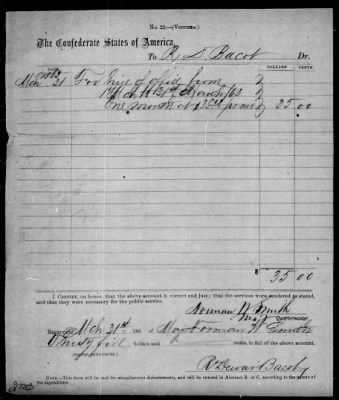 No. 22.—(Voucher.)
The Confederate States of America,
To R. D. Bacot Dr.
DATE. DOLLARS CENTS
1863
Mch 31 For hire of office from
1st Mch to 31st March/63
One month at 35$ per mo 35 00
$ 35 00
I Certify, on honor, that the above account is correct and just; that the services were rendered as stated, and that they were necessary for the public service.
Norman W Smith
Maj Quartermaster
Received Mch 31st 186 Maj Norman W Smith
Thirty five dollars and cents, in full of the above account.
R Dewar Bacot
NOTE.—This form will be used for miscellaneous disbursements, and will be entered in Abstract B or C, according to the nature of the expenditure.